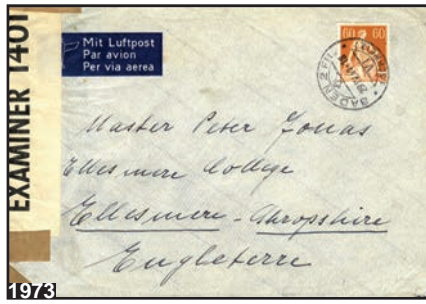 EXAMINER 1401
Mit Luftpost
Par avion
Per via aerea
60 60
BADEN 2
Master Peter Jonas
Ellesmere College
Ellesmere - Shropshire
Engleterre
1973